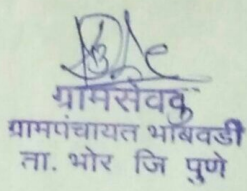 ग्रामसेवक
ग्रामपंचायत भांबवडी
ता. भोर जि पुणे